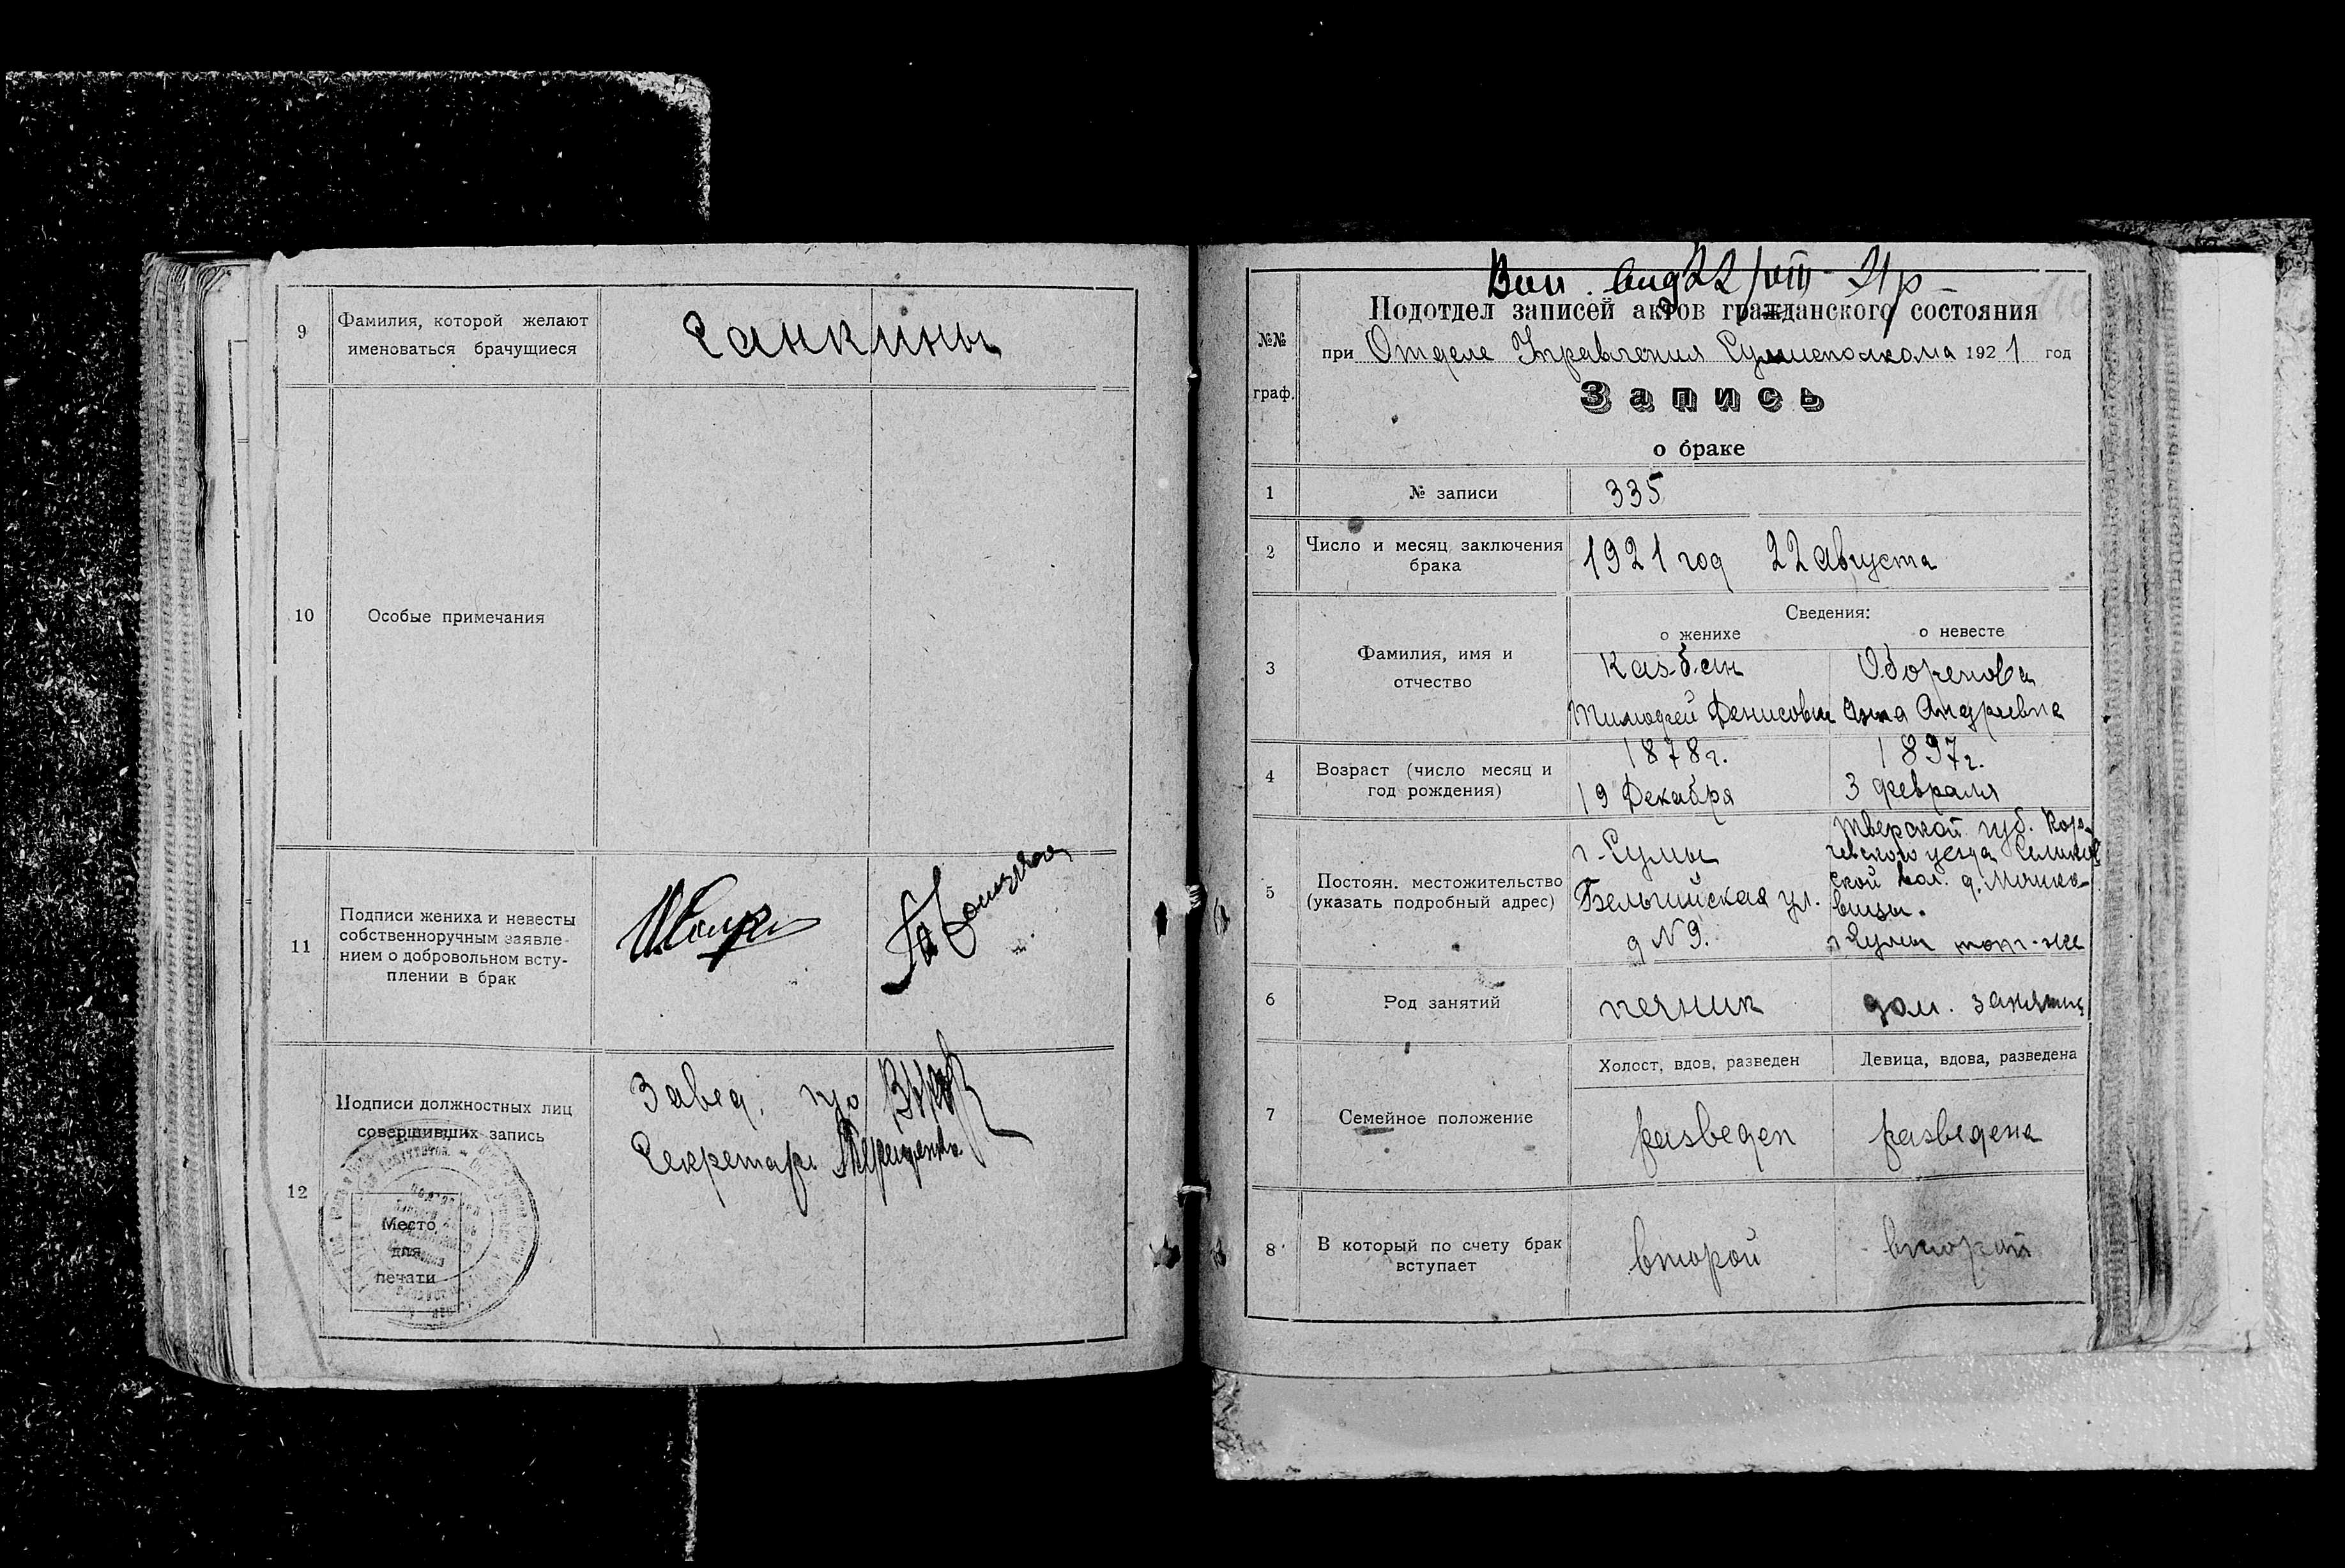 9
Фамилия, которой желают
именоваться брачущиеся
Санкины
10
Особые примечания
11
Подписи жениха и невесты
собственноручным заявле-
нием о добровольном всту-
плении в брак
12
Подписи должностных лиц
совершивших запись
Место
для
печати
Завед. п/о
Секретарь
22/VIII 21 р
№№
граф.
Подотдел записей актов гражданского состояния
при Отделе Управления Сумисполкома 1921 год
Запись
о браке
1
№ записи
335
2
Число и месяц заключения
брака
1921 год 22 августа
3
Фамилия, имя и
отчество
Сведения:
о женихе
о невесте
Казбан
Оборенова
Тимофей Денисович
Анна Андреевна
4
Возраст (число месяц и
год рождения)
1878 г.
19 Декабря
1897 г.
3 февраля
5
Постоян. местожительство
(указать подробный адрес)
г. Сумы
Бельгийская ул.
д N 9.
Тверской губ. Кор-
чевского уезда
ской вол. д.
вицы.
г. Сумы тот-же
6
Род занятий
печник
дом. занятия
7
Семейное положение
Холост, вдов, разведен
Девица, вдова, разведена
разведен
разведена
8
В который по счету брак
вступает
второй
второй